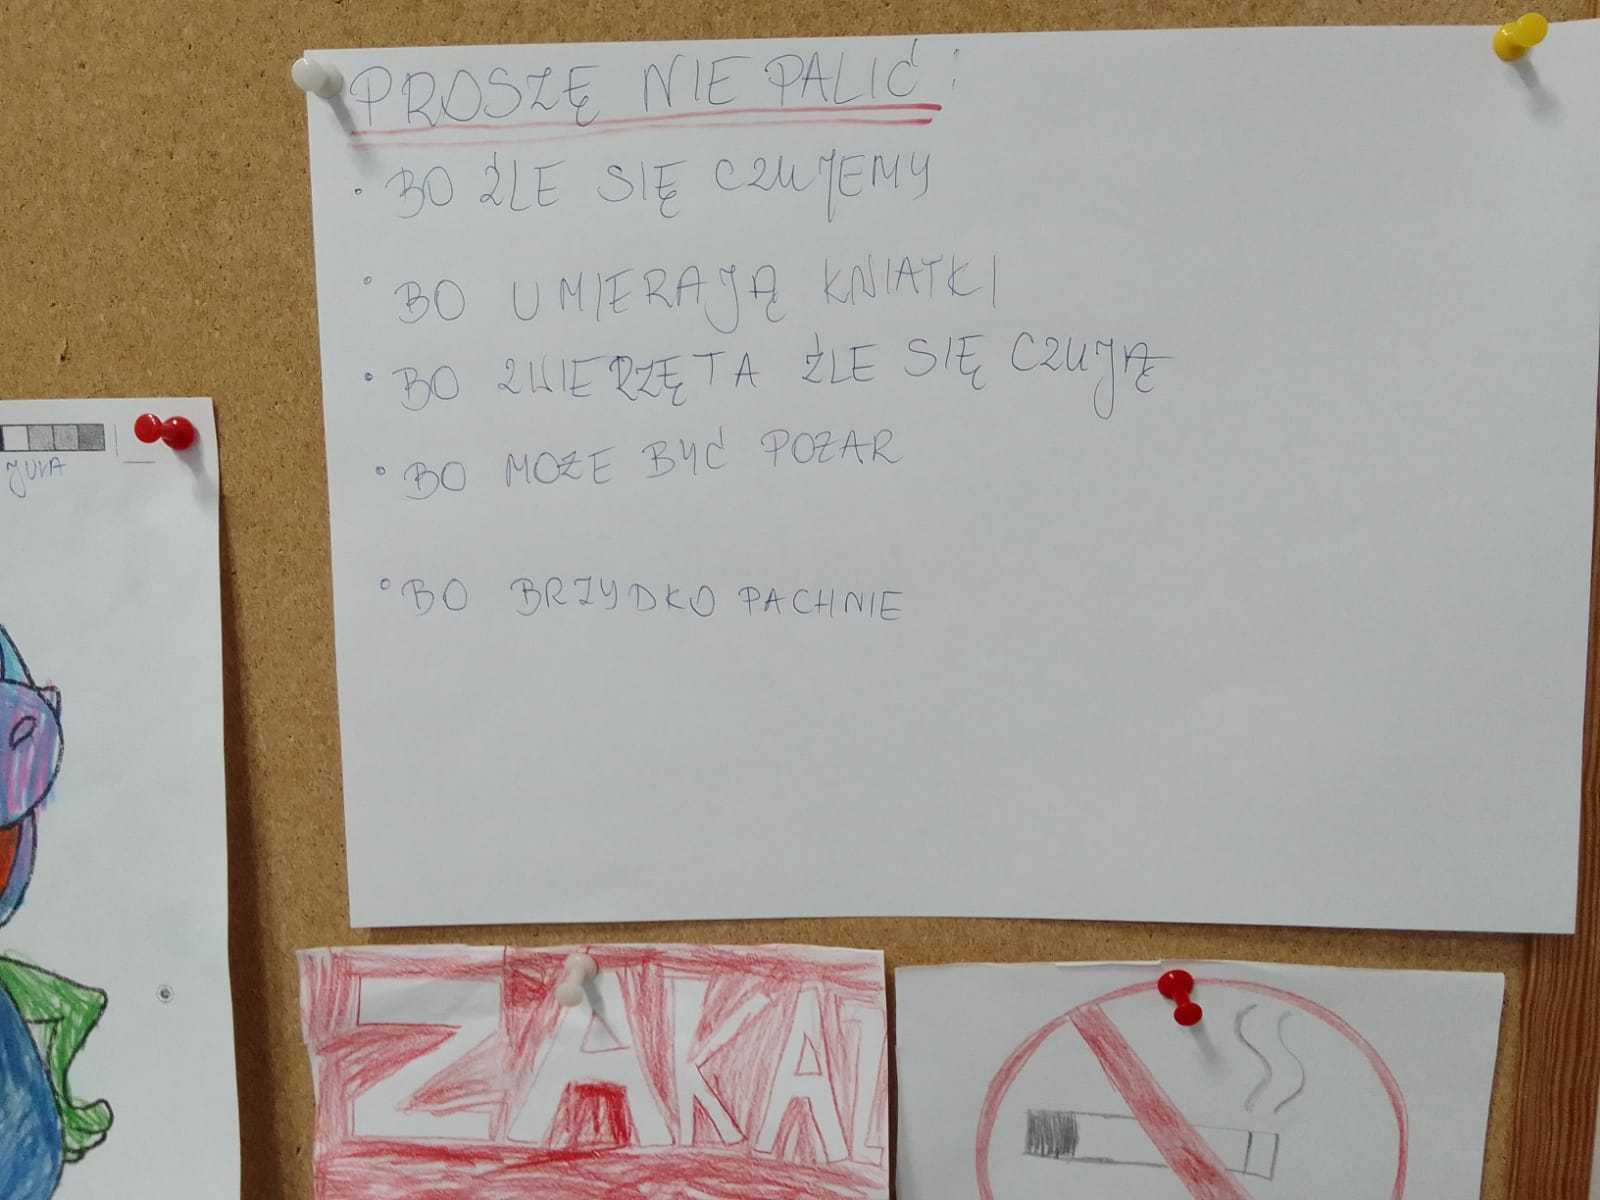 PROSZĘ NIE PALIĆ:
• BO ŹLE SIĘ CZUJEMY
• BO UMIERAJĄ KWIATKI
• BO ZWIERZĘTA ŹLE SIĘ CZUJĄ
• BO MOŻE BYĆ POŻAR
• BO BRZYDKO PACHNIE
JULA
ZAKAZ